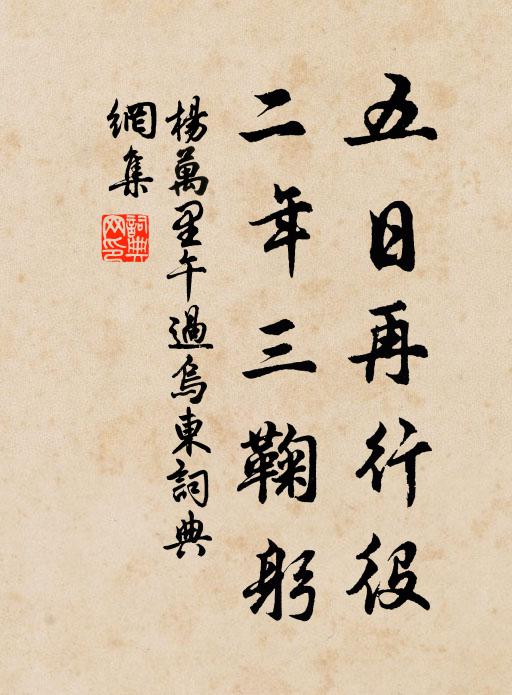 五日再行役
二年三鞠躬
楊萬里午過烏東詞典
網集
詞典
网印